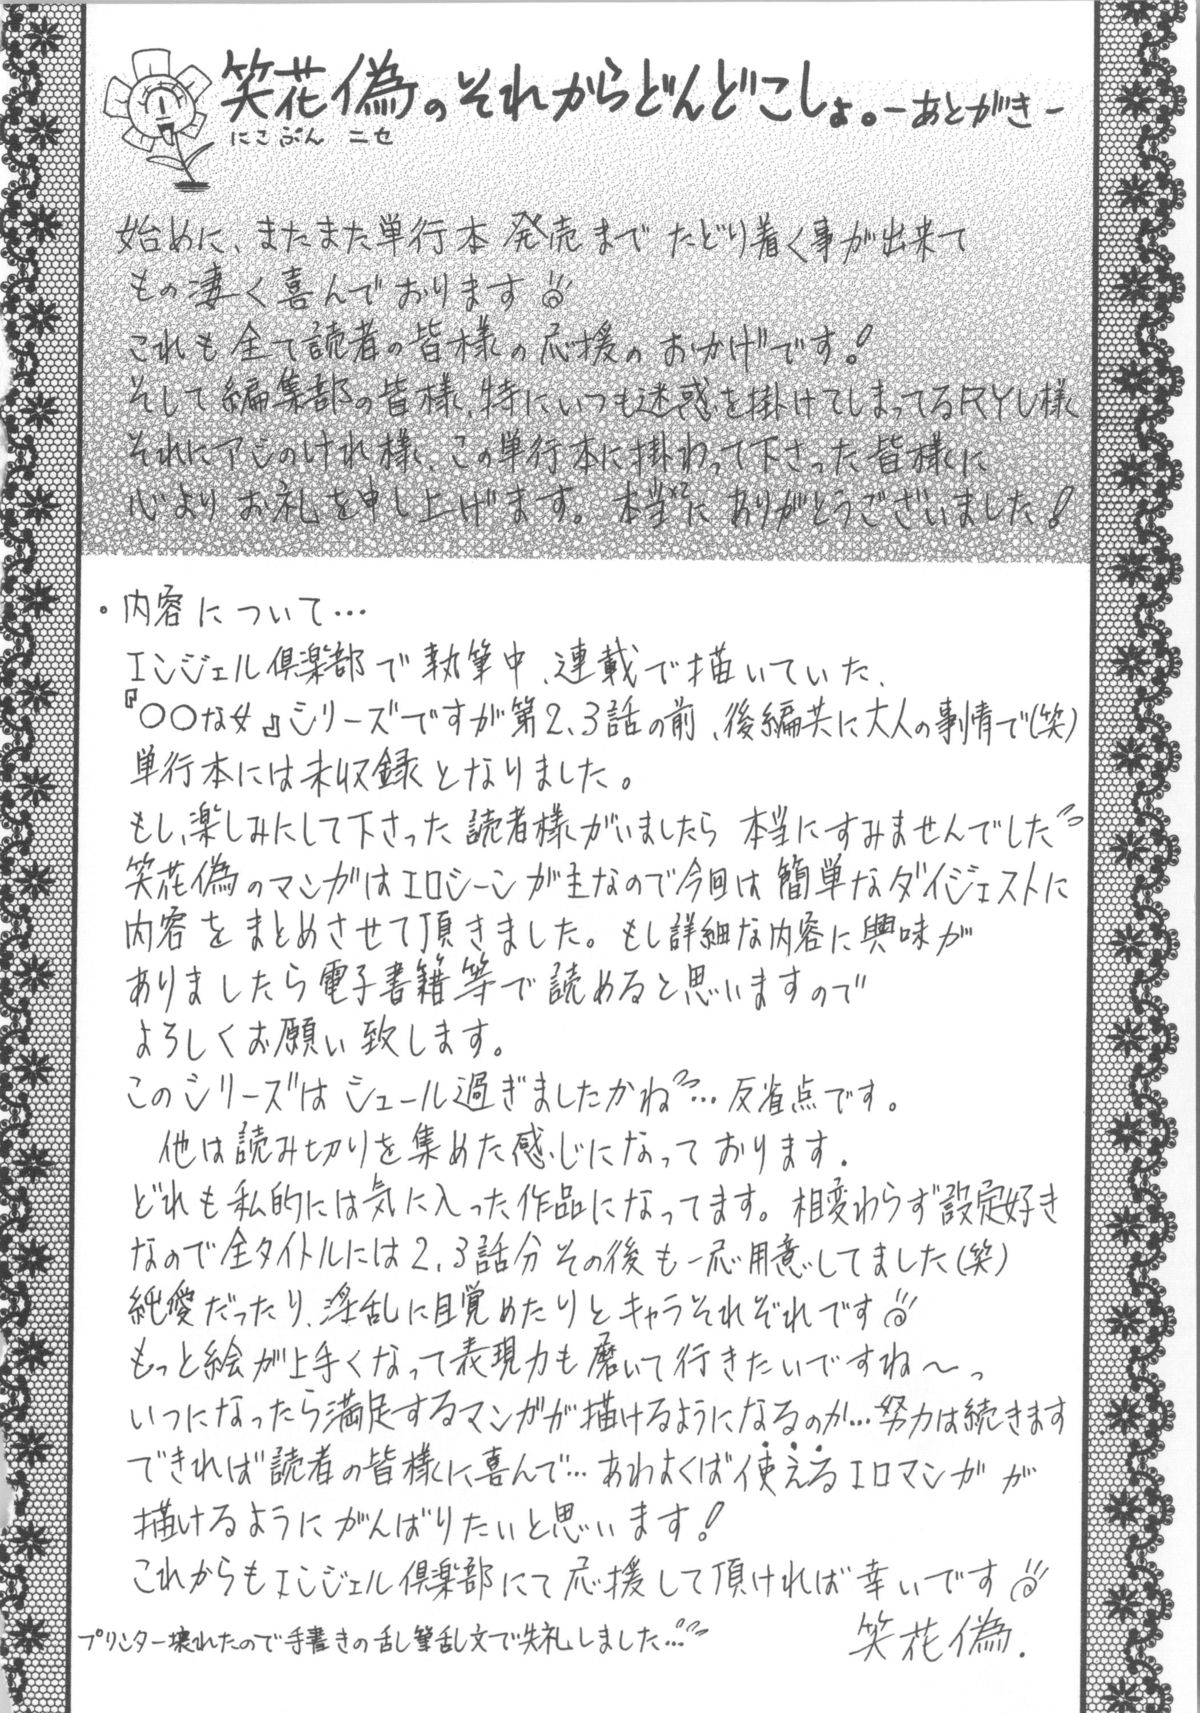 笑花偽のそれからどんどこしょ。-あとがき-
にこぷん ニセ
始めに、またまた単行本発売までたどり着く事が出来て
もの凄く喜んでおります
これも全て読者の皆様の応援のおかげです!
そして編集部の皆様、特にいつも迷惑を掛けてしまってるRYU様
それにアシのけれ様、この単行本に掛わって下さった皆様に
心よりお礼を申し上げます。本当にありがとうございました!
・内容について…
エンジェル倶楽部で執筆中、連載で描いていた、
『〇〇な女』シリーズですが第2、3話の前、後編共に大人の事情で(笑)
単行本には未収録となりました。
もし、楽しみにして下さった読者様がいましたら本当にすみませんでした
笑花偽のマンガはエロシーンが主なので今回は簡単なダイジェストに
内容をまとめさせて頂きました。もし詳細な内容に興味が
ありましたら電子書籍等で読めると思いますので
よろしくお願い致します。
このシリーズはシュール過ぎましたかね…反省点です。
他は読み切りを集めた感じになっております.
どれも私的には気に入った作品になってます。相変わらず設定好き
なので全タイトルには2、3話分その後も一応用意してました(笑)
純愛だったり、淫乱に目覚めたりとキャラそれぞれです
もっと絵が上手くなって表現力も磨いて行きたいですね〜っ
いつになったら満足するマンガが描けるようになるのか…努力は続きます
できれば読者の皆様に喜んで…あわよくば使えるエロマンガが
描けるようにがんばりたいと思います!
これからもエンジェル倶楽部にて応援して頂ければ幸いです
プリンター壊れたので手書きの乱筆乱文で失礼しました…
笑花偽.